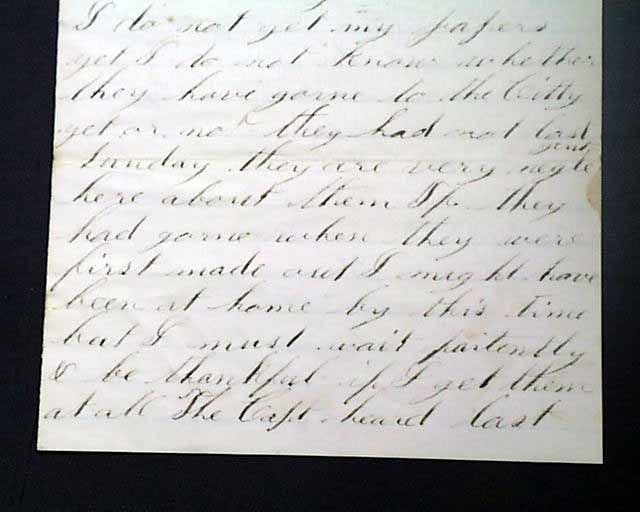 I do not get my papers
yet I do not know whether
they have gorne to the Citty
yet or not they had not last
Sunday they are very neglegent
here about them If they
had gorne when they were
first made out I might have
been at home by this time
but I must wait paitently
& be thankful if I get them
at all The Capt. heard last